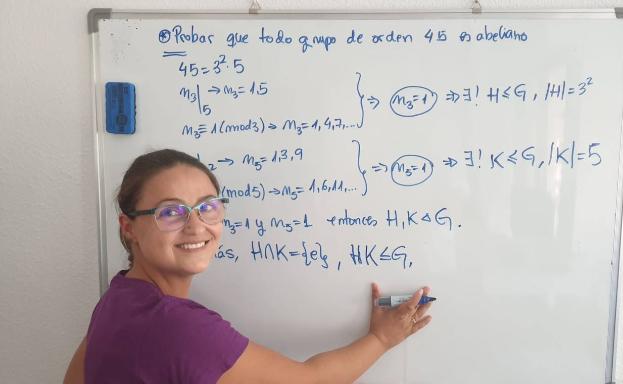 ⊛ Probar que todo grupo de orden 45 es abeliano
45 = 3² · 5
n₃ | 5 → n₃ = 1, 5
n₃ ≡ 1 (mod 3) → n₃ = 1, 4, 7, ...
} ⇒ n₃ = 1 ⇒ ∃! H ≤ G, |H| = 3²
2 → n₅ = 1, 3, 9
(mod 5) → n₅ = 1, 6, 11, ...
} ⇒ n₅ = 1 ⇒ ∃! K ≤ G, |K| = 5
n₃ = 1 y n₅ = 1 entonces H, K ⊲ G.
H∩K = {e}, HK ≤ G,